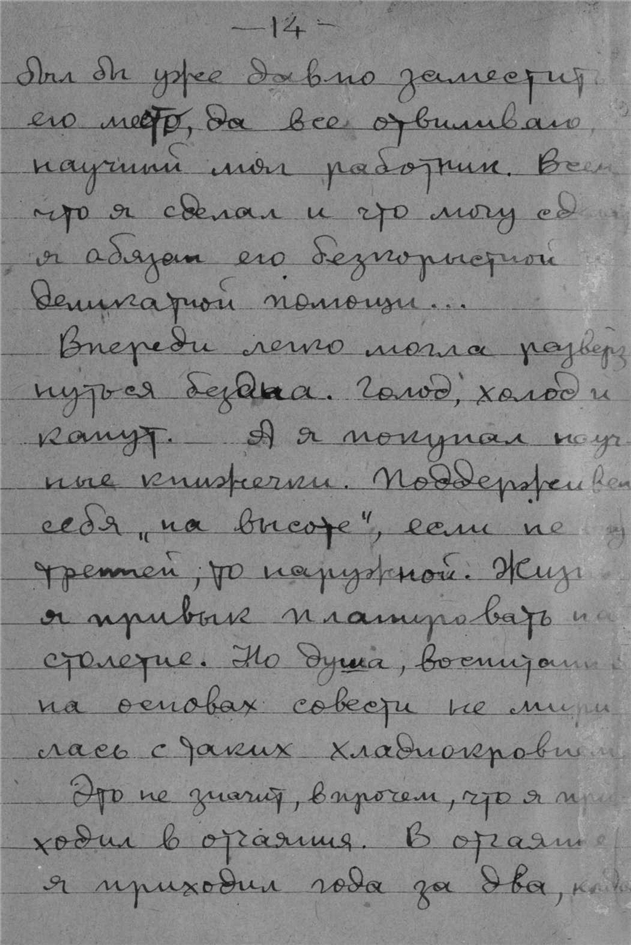 —14—
был бы уже давно заместить
его место, да все отвиливаю,
научный мол работник. Всем
что я сделал и что могу
я абязан его безкорыстной и
деликатной помощи...
Впереди легко могла разверз
нуться бездна. Голод, холод и
капут. А я покупал науч
ные книжечки. Поддерживал
себя „на высоте", если не
тренней, то наружной. Жизнь
я привык планировать на
столетие. Но душа, воспитанная
на основах совести не мири
лась с таких хладнокровием
Это не значит, впрочем, что я при
ходил в отчаяния. В отчаяние
я приходил года за два,